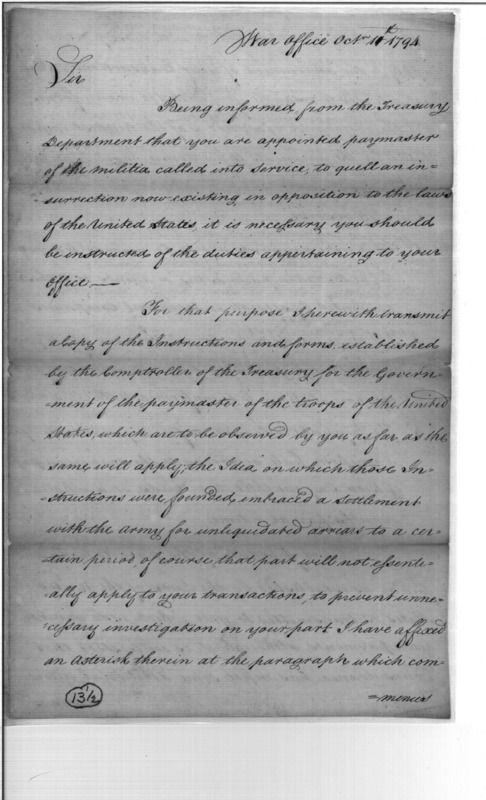 War Office Octr. 11th 1794
Sir
Being informed from the Treasury
Department that you are appointed paymaster
of the militia called into service, to quell an in=
surrection now existing in opposition to the laws
of the United States, it is necessary you should
be instructed of the duties appertaining to your
Office.—
For that purpose I herewith transmit
a Copy of the Instructions and forms established
by the Comptroller of the Treasury for the Govern=
=ment of the paymaster of the troops of the United
States, which are to be observed by you as far as the
same will apply, the Idea on which those In=
=structions were founded, embraced a settlement
with the army for unliquidated arrears to a cer=
=tain period, of course that part will not essenti=
=ally apply to your transactions, to prevent unne=
=cessary investigation on your part I have affixed
an asterisk therein at the paragraph which com=
=mences
13½